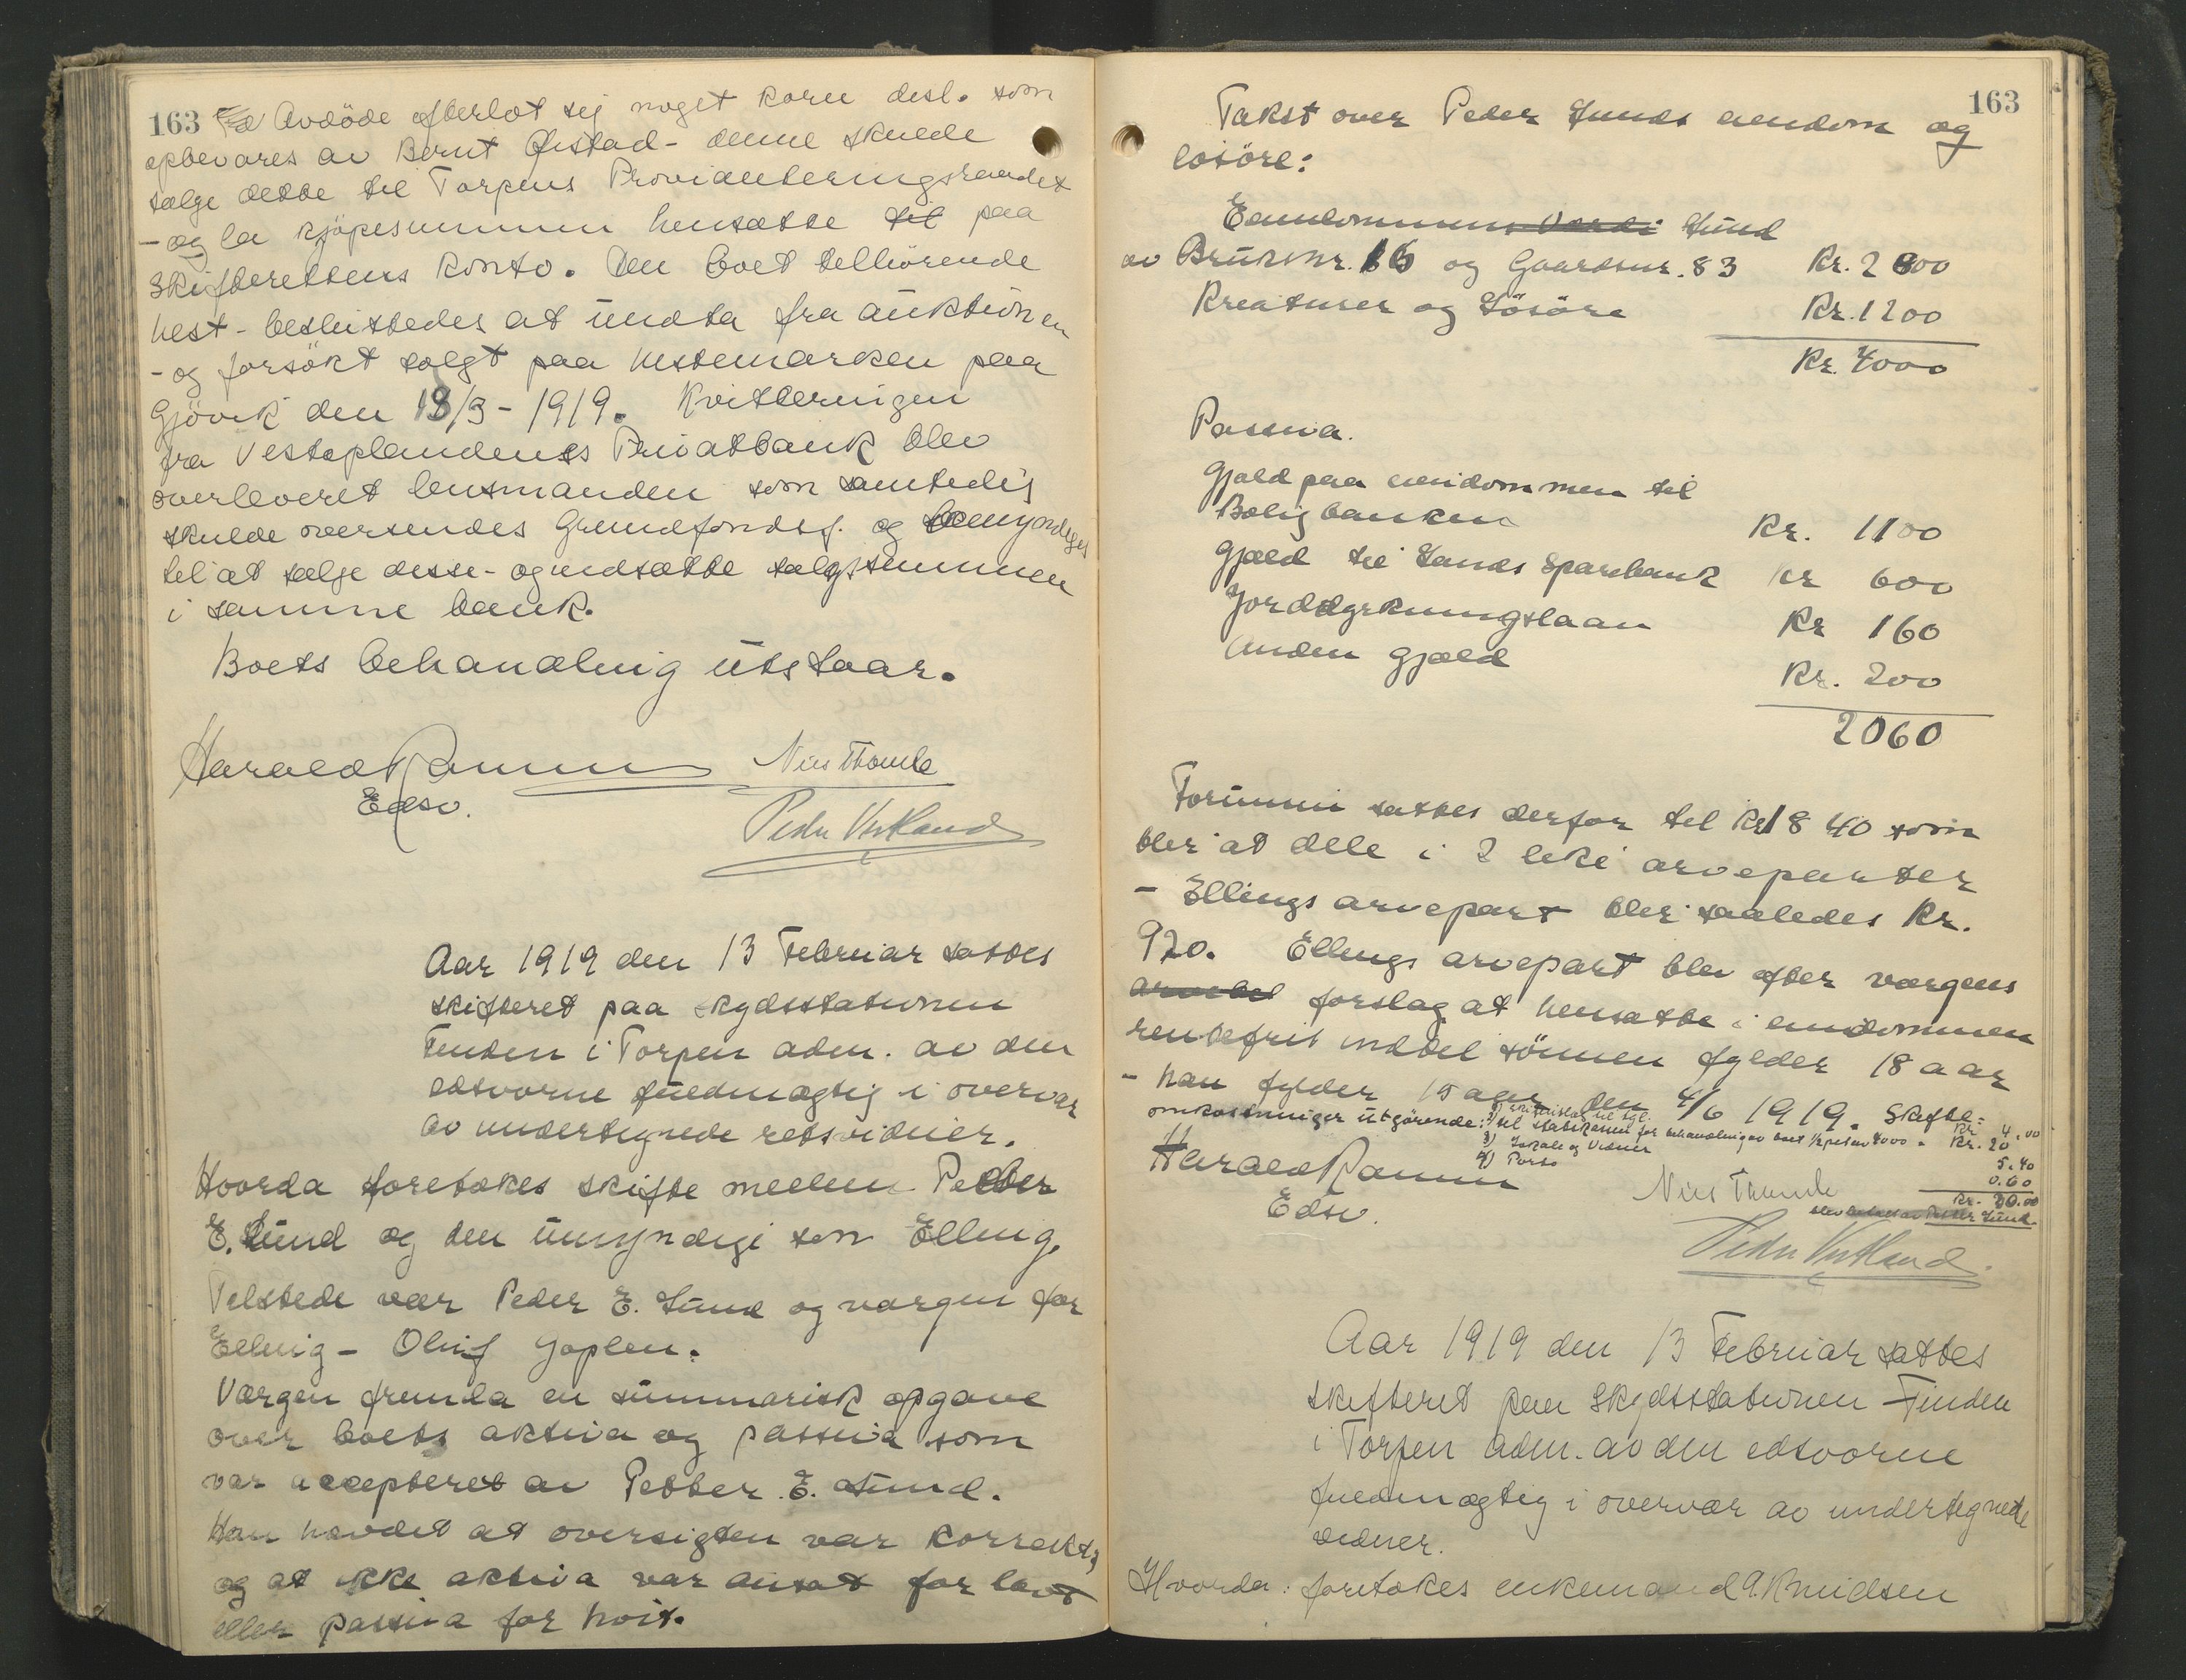 163 Avdöde efterlot sig noget korn desl. som
opbevares av Bernt Østad - denne skulde
sælge dette til Torpens Provianteringsraadet
- og la kjöpesummen hensætte til paa
Skifterettens Konto. Den boet tilhörende
hest - besluttedes at undta fra auktionen
- og forsökt solgt paa hestemarken paa
Gjövik den 18/3 - 1919. Kvitteringen
fra Vestoplandenes Privatbank blev
overleveret lensmanden som samtidig
skulde oversendes Grundfondsf. og bemyndiges
til at sælge disse - og indsætte salgssummen
i samme bank.
Boets behandling utstaar.
Harald Ramm Nils Thomle
Edsv.
Peder Vestland
Aar 1919 den 13 Februar sattes
skifteret paa skydsstationen
Finden i Torpen adm. av den
edsvorne fuldmægtig i overvær
av undertegnede retsvidner.
Hvorda foretokes skifte mellem Petter
E. Lund og den umyndige søn Elling.
Tilstede var Peder E. Lund og værgen for
Elling - Oluf Joplen.
Værgen fremla en summarisk opgave
over boets aktiva og passiva som
var accepteret av Petter E. Lund.
Han hævdet at oversigten var korrekt,
og at ikke aktiva var ansat for lavt
eller passiva for höit.
163
Takst over Peder Lunds eiendom og
lösöre:
Eiendommens Værdi Lund
av Bruksnr. 16 og Gaardsnr. 83 Kr. 2800
Kreaturer og Lösöre Kr. 1200
Kr. 4000
Passiva.
Gjæld paa eiendommen til
Boligbanken Kr. 1100
Gjæld til Lands Sparebank Kr 600
Jorddyrkningslaan Kr 160
Anden gjæld Kr. 200
2060
Formuen sattes derfor til Kr 1840 som
blir at dele i 2 like arveparter
- Ellings arvepart blir saaledes Kr.
920. Ellings arvepart blev efter værgens
forslag at hensætte i eiendommen
rentefrit indtil sönnen fylder 18 aar
- han fylder 15 aar den 4/6 1919. Skifte-
omkostninger utgörende: 1) til sgl. Kr 4.00
2) til statskassen for behandling av boet 1/2 pct av 4000 - Kr. 20
3) Lokale og Vidner 5.40
4) Porto 0.60
Kr. 30.00
blev betalt av Petter Lund.
Harald Ramm Nils Thomle
Edsv.
Peder Vestland
Aar 1919 den 13 Februar sattes
skifteret paa Skydsstationen Finden
i Torpen adm. av den edsvorne
fuldmægtig i overvær av undertegnede
vidner.
Hvorda: foretokes enkemand A. Knudsen